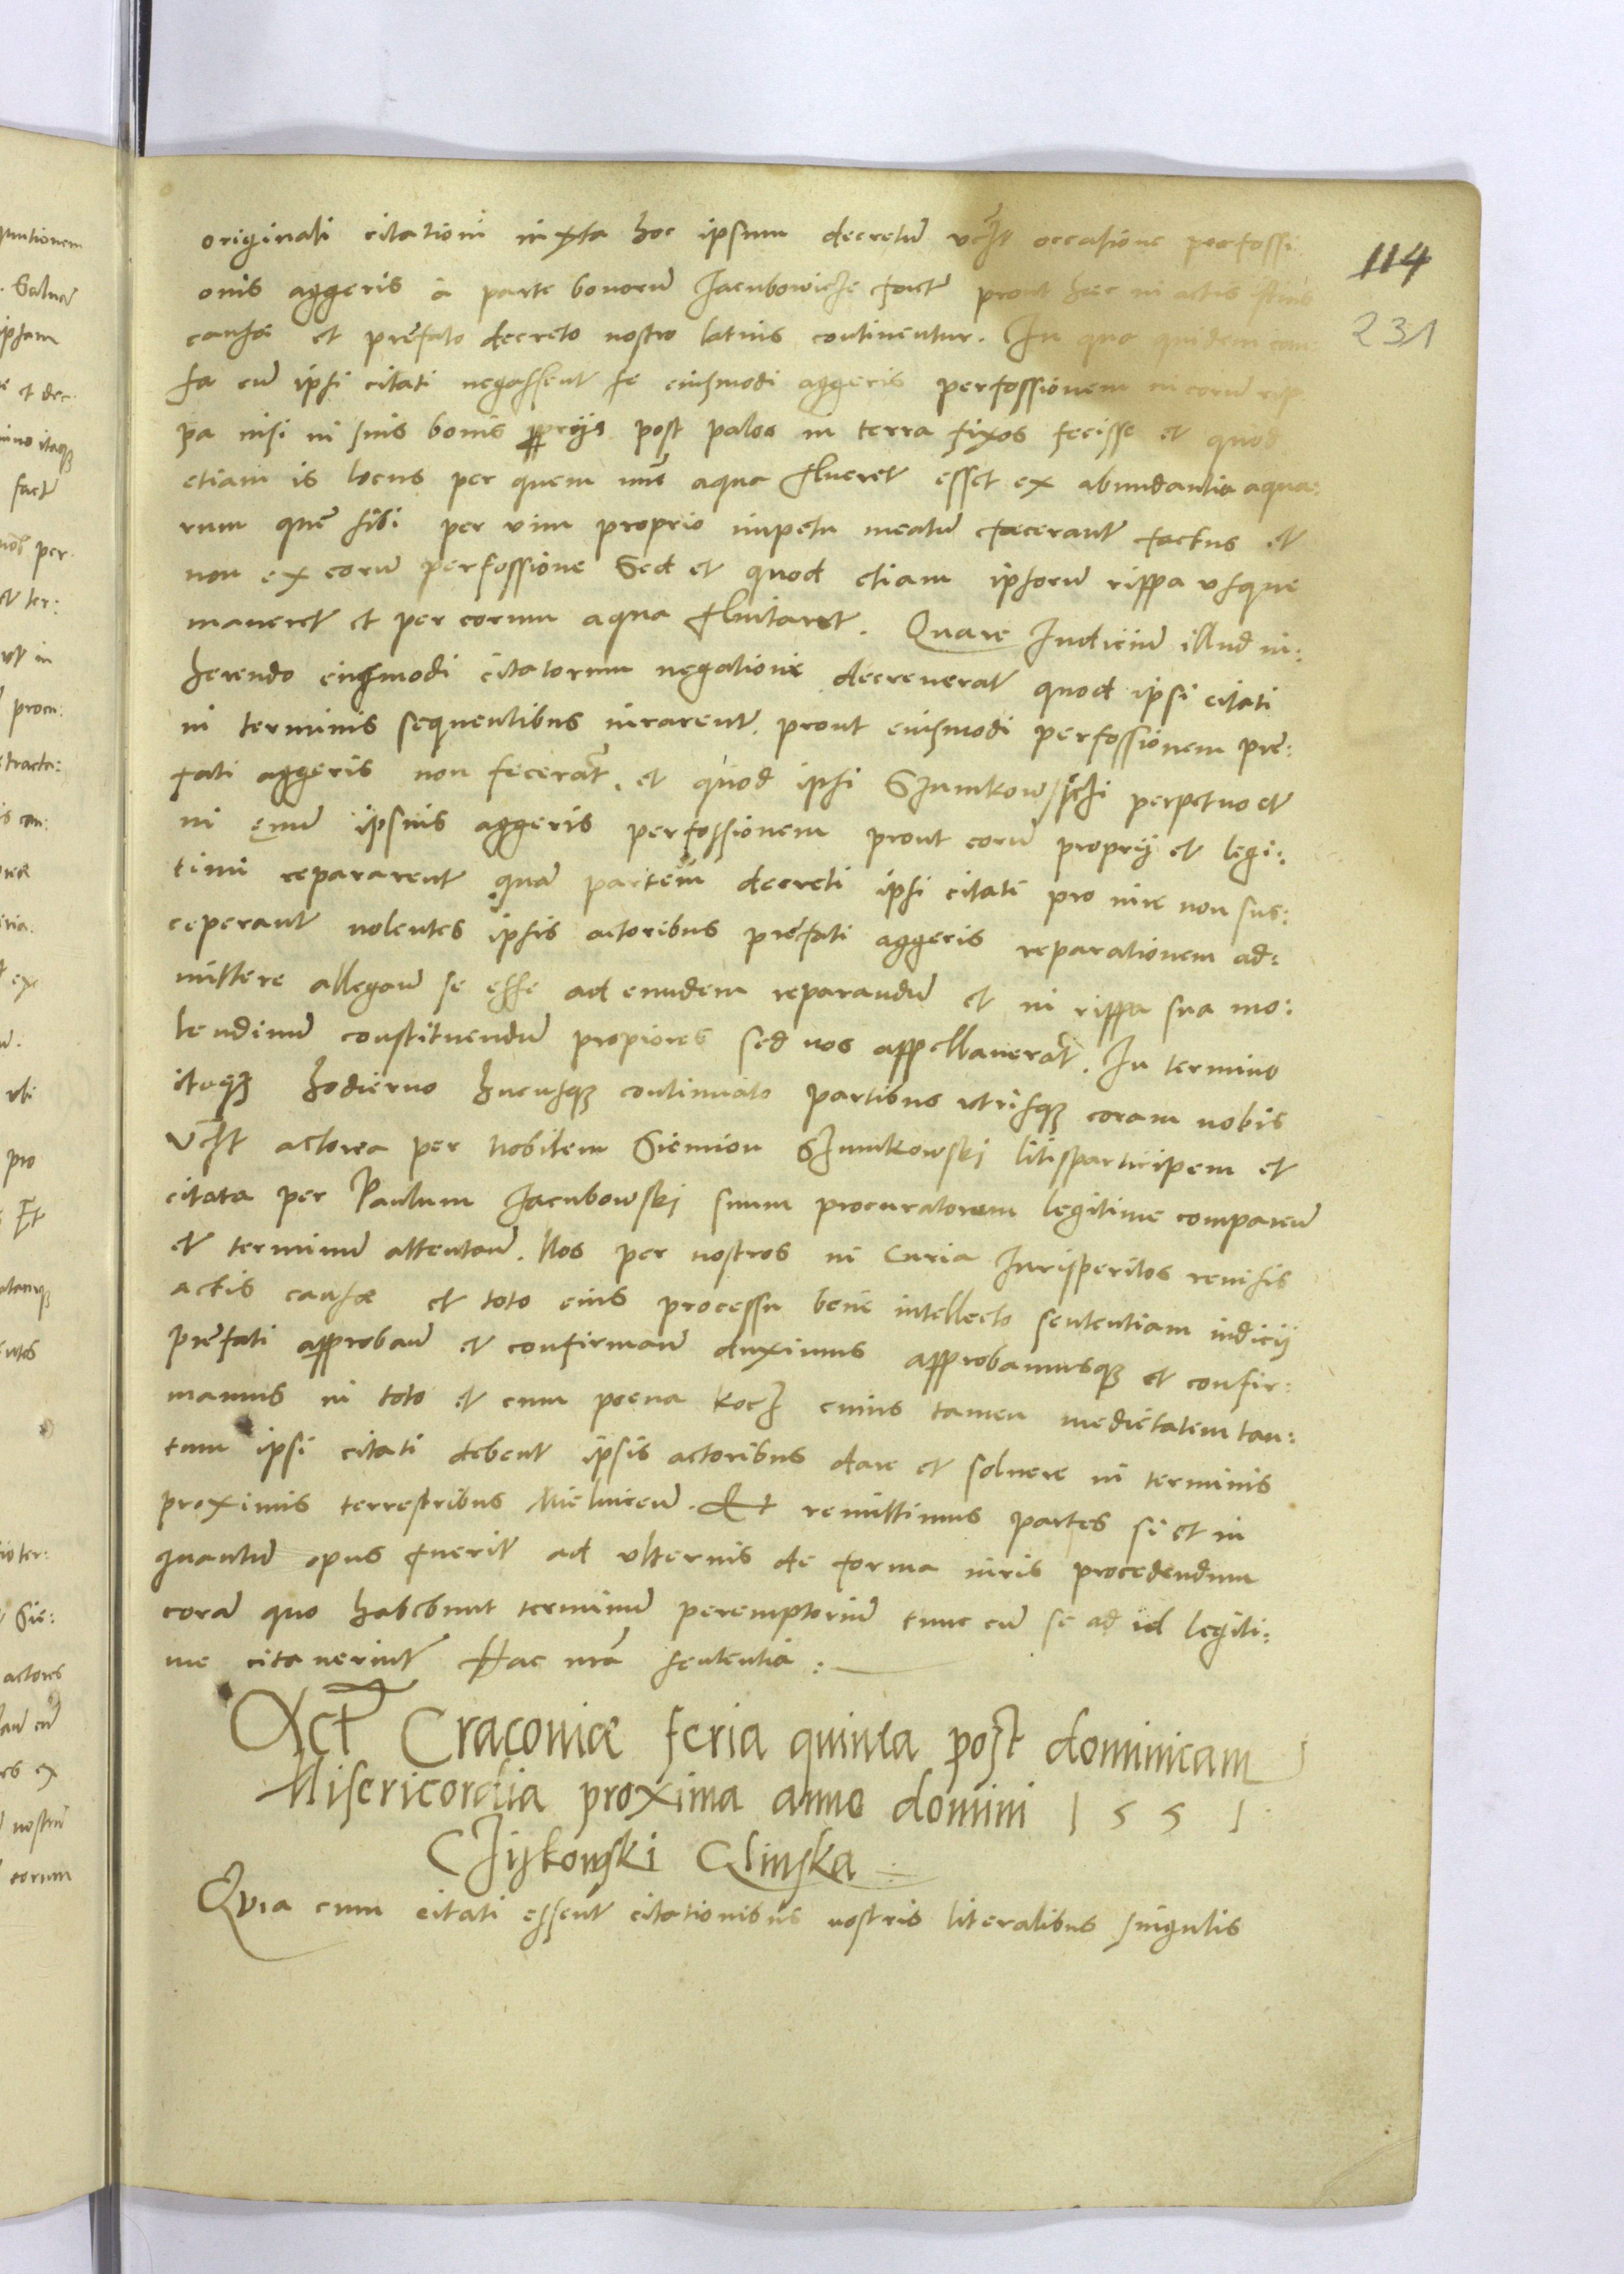 originali citationi iuxta hoc ipsum decretũ vcȝt occasione perfossi
onis aggeris à parte bonorum Jacubowicze factẽ prout hæc in actis istius
causæ et præfato decreto nostro latius continentur. In qua quidem cau
sa cũ ipsi citati negassent se eiusmodi aggeris perfossionem in eorũ rip
pa nisi in suis bonis propriis post palos in terra fixos fecisse et quod
etiam is locus per quem nũc aqua flueret esset ex abundantia aqua:
rum quẽ sibi per vim proprio impetu meatũ fecerant factus et
non ex eorũ perfossione Sed et quod etiam ipsorũ rippa vsque
maneret et per eorum aqua fluitaret. Quare Judiciũ illud in:
herendo eiusmodi citatorum negationi decreuerat quod ipsi citati
in terminis sequentibus iurarent prout eiusmodi perfossionem præ:
fati aggeris non fecerãt, et quod ipsi Szumkowsczi perpetuo et
in ęuũ ipsius aggeris perfossionem prout eorũ proprij et legi:
timi repararent quã partem decreti ipsi citati pro iure non sus:
ceperant nolentes ipsis actoribus præfati aggeris reparationem ad:
mittere allegaũ se esse ad eundem reparandũ et in rippa sua mo:
lendinũ constituendũ propiores sed nos appellauerãt. In termino
itaqȝ hodierno hucusqȝ continuato partibus vtrisqȝ coram nobis
vcȝt actorea per Nobilem Siemion Szumkowski litisparticipem et
citata per Paulum Jacubowski suum procuratorem legitime compareũ
et terminũ attentaũ. Nos per nostros in Curia Jurisperitos reuisis
actis causæ et toto eius processu bene intellecto sententiam iudicij
præfati approbaũ et confirmaũ duximus approbamusqȝ et confir:
mamus in toto et cum poena kocz cuius tamen medietatem tan:
tum ipsi citati debent ipsis actoribus dare et soluere in terminis
proximis terrestribus Mielniceũ. Et remittimus partes si et in
quantũ opus fuerit ad vlterius de forma iuris procedendum
corã quo habebunt terminũ peremptoriũ tunc cũ se ad id legiti:
me citauerint Hac nrã sententia :
Act Cracouiæ feria quinta post dominicam
Misericordia proxima anno domini 1551
Czijskowski Glinska :
Quia cum citati essent citationibus nostris literalibus singulis
114
231